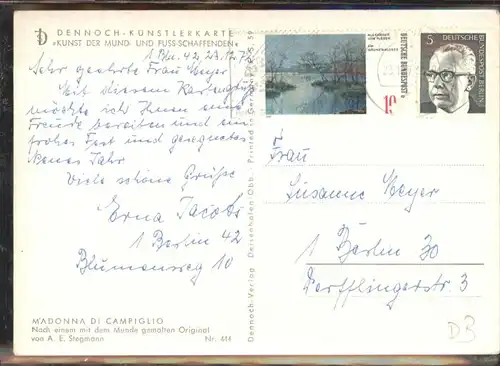 DENNOCH-KÜNSTLERKARTE
»KUNST DER MUND- UND FUSS-SCHAFFENDEN«
1 Bln. 42, 23.12.72
Sehr geehrte Frau Meyer
Mit diesem Kartengruß
möchte ich Ihnen eine
Freude bereiten und ein
frohes Fest und gesegnetes
Neues Jahr
Viele schöne Grüße
Erna Jacobs
1 Berlin 42
Blumenweg 10
MADONNA DI CAMPIGLIO
Nach einem mit dem Munde gemalten Original
von A. E. Stegmann
Nr. 414
Dennoch-Verlag Deisenhofen/Obb. · Printed in Germany
59
DEUTSCHE BUNDESPOST
10
5
DEUTSCHE BUNDESPOST BERLIN
Frau
Susanne Meyer
1 Berlin 30
Derfflingerstr. 3
D3